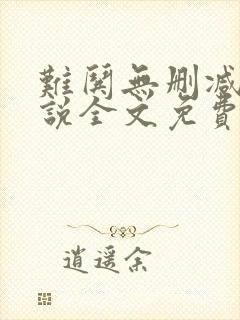 難鬨無刪减
說全文免費
逍遥余